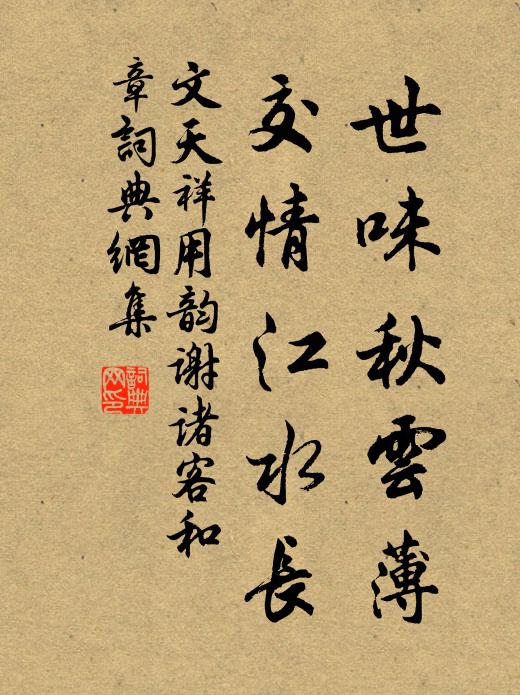 世味秋雲薄
交情江水長
文天祥用韵谢诸客和
章詞典網集
詞典
网印